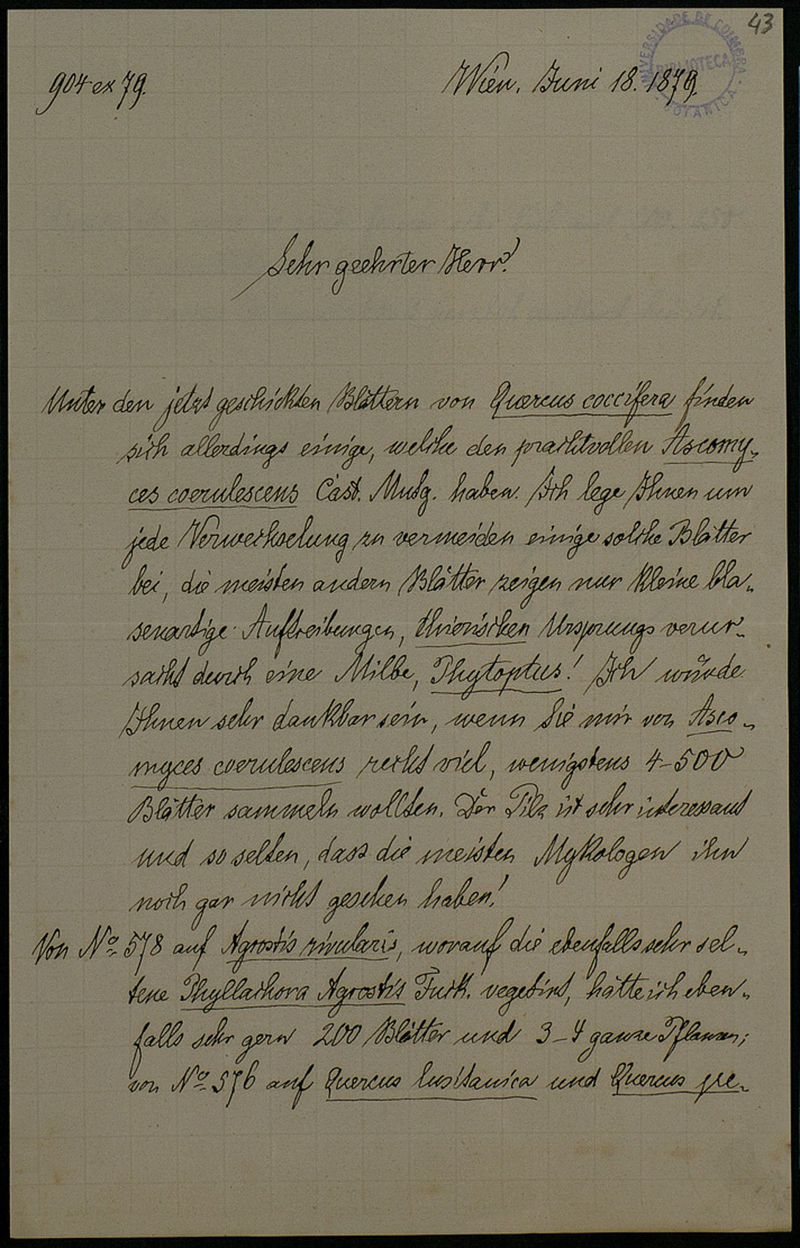 43
UNIVERSIDADE DE COIMBRA
BIBLIOTECA
BOTANICA
904 ex 79.
Wien. Juni 18. 1879.
Sehr geehrter Herr!
Unter den jetzt geschickten Blättern von Quercus coccifera finden
sich allerdings einige, welche den prachtvollen Ascomy-
ces coerulescens Cast. Mntg. haben. Ich lege Ihnen um
jede Verwechselung zu vermeiden einige solche Blätter
bei, die meisten andern Blätter zeigen nur kleine bla-
senartige Auftreibungen, thierischen Ursprungs verur-
sacht durch eine Milbe, Phytoptus! Ich würde
Ihnen sehr dankbar sein, wenn Sie mir von Asco-
myces coerulescens recht viel, wenigstens 4-500
Blätter sammeln wollten. Der Pilz ist sehr interessant
und so selten, dass die meisten Mykologen ihn
noch gar nicht gesehen haben!
Von No 578 auf Agrostis rivularis, worauf die ebenfalls sehr sel-
tene Phyllachora Agrostis Fuck. vegetirt, hätte ich eben-
falls sehr gern 200 Blätter und 3-4 ganze Pflanzen;
von No 576 auf Quercus lusitanica und Quercus pe-